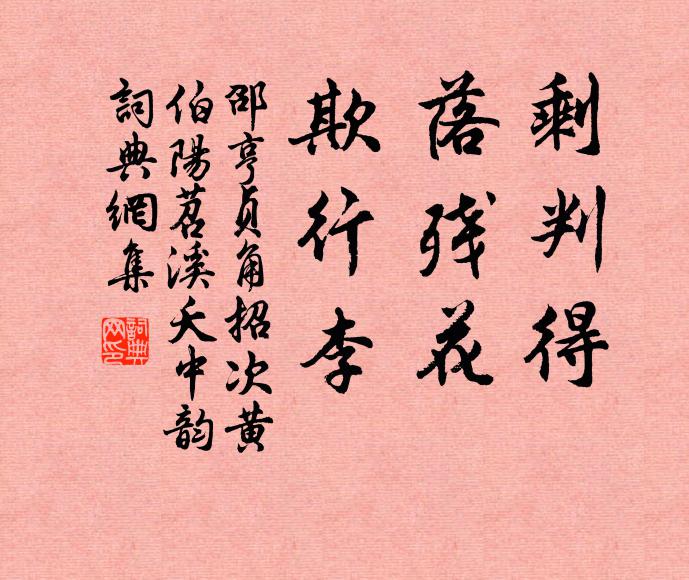 剩判得
落残花
欺行李
邵亨贞角招次黄
伯陽苕溪夭中韵
詞典網集
詞典
网印